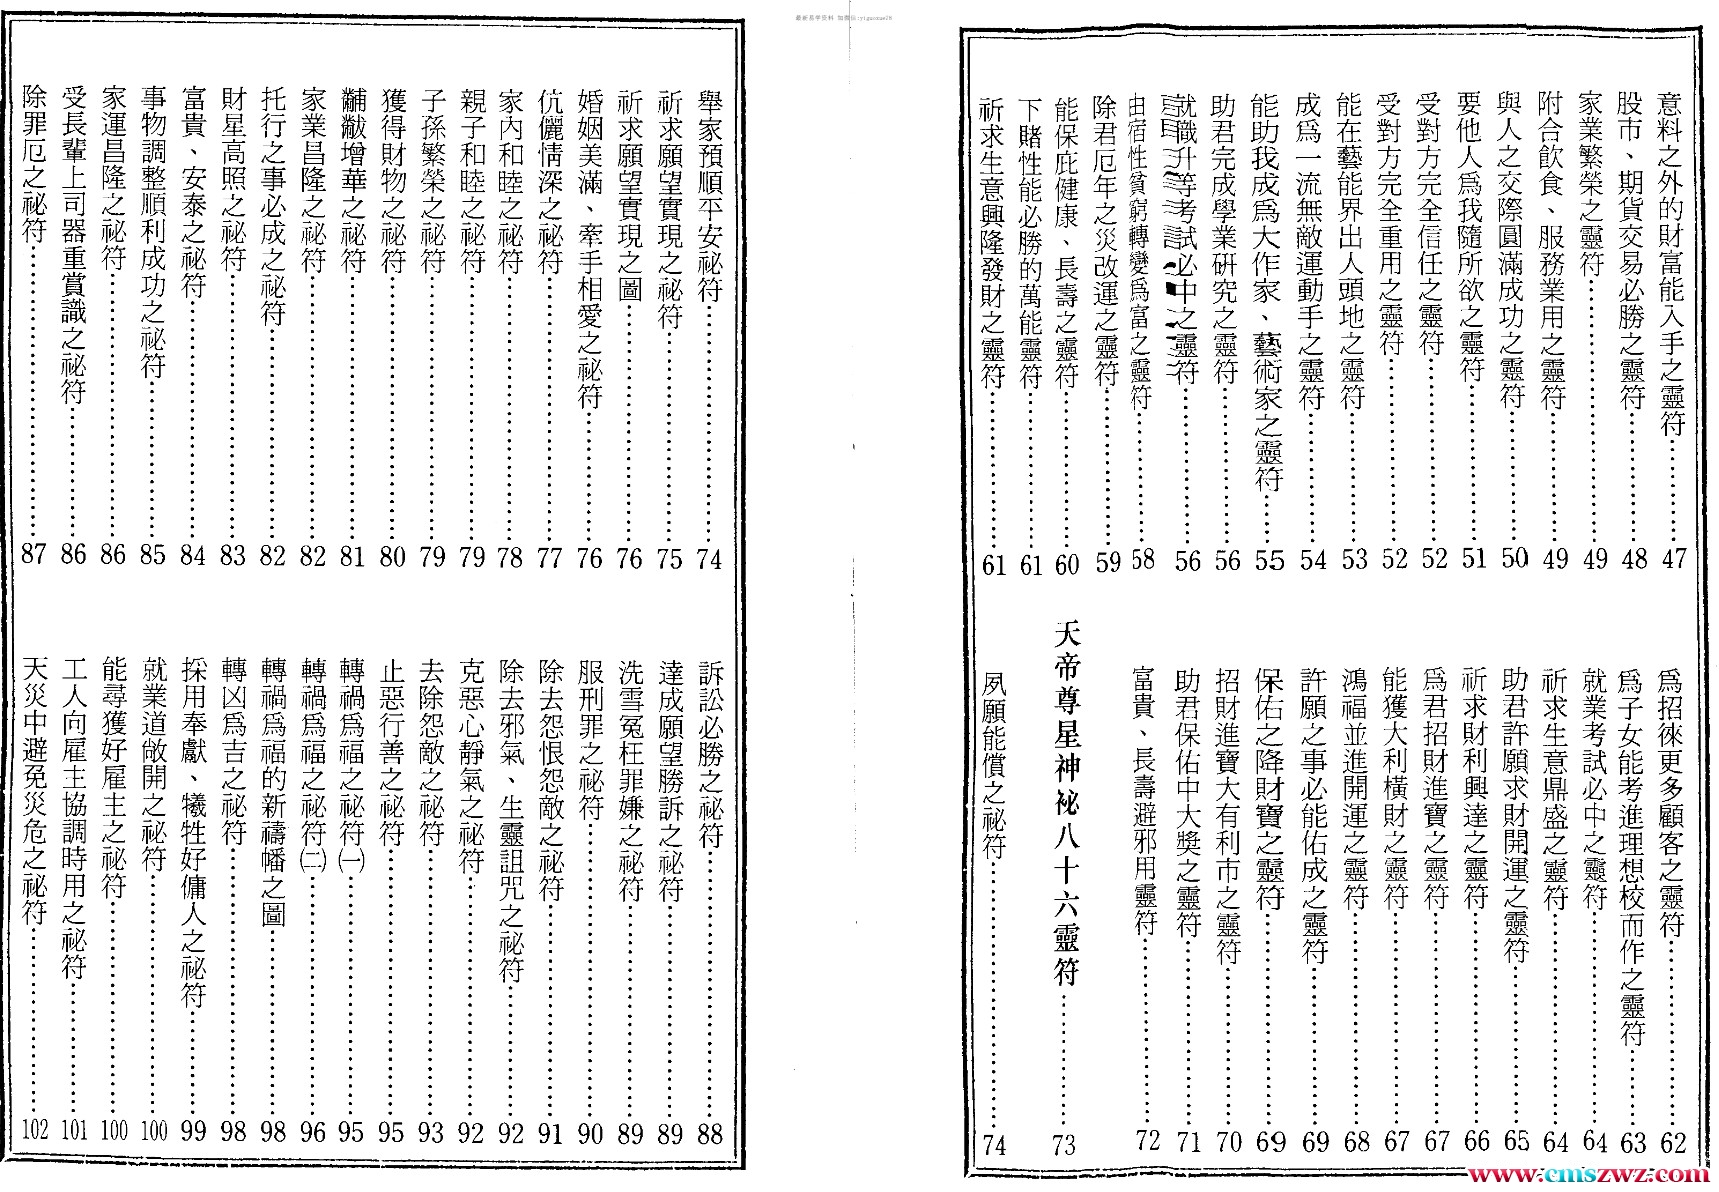 最新易學資料 加微信:yiguoxue28
意料之外的財富能入手之靈符⋯⋯47
股市、期貨交易必勝之靈符⋯⋯48
家業繁榮之靈符⋯⋯49
附合飲食、服務業用之靈符⋯⋯49
與人之交際圓滿成功之靈符⋯⋯50
要他人爲我隨所欲之靈符⋯⋯51
受對方完全信任之靈符⋯⋯52
受對方完全重用之靈符⋯⋯52
能在藝能界出人頭地之靈符⋯⋯53
成爲一流無敵運動手之靈符⋯⋯54
能助我成爲大作家、藝術家之靈符⋯⋯55
助君完成學業研究之靈符⋯⋯56
就職升等考試必中之靈符⋯⋯56
由宿性貧窮轉變爲富之靈符⋯⋯58
除君厄年之災改運之靈符⋯⋯59
能保庇健康、長壽之靈符⋯⋯60
下賭性能必勝的萬能靈符⋯⋯61
祈求生意興隆發財之靈符⋯⋯61
爲招徠更多顧客之靈符⋯⋯62
爲子女能考進理想校而作之靈符⋯⋯63
就業考試必中之靈符⋯⋯64
祈求生意鼎盛之靈符⋯⋯64
助君許願求財開運之靈符⋯⋯65
祈求財利興達之靈符⋯⋯66
爲君招財進寶之靈符⋯⋯67
能獲大利橫財之靈符⋯⋯67
鴻福並進開運之靈符⋯⋯68
許願之事必能佑成之靈符⋯⋯69
保佑之降財寶之靈符⋯⋯69
招財進寶大有利市之靈符⋯⋯70
助君保佑中大獎之靈符⋯⋯71
富貴、長壽避邪用靈符⋯⋯72
天帝尊星神祕八十六靈符⋯⋯73
夙願能償之祕符⋯⋯74
舉家預順平安祕符⋯⋯74
祈求願望實現之祕符⋯⋯75
祈求願望實現之圖⋯⋯76
婚姻美滿、牽手相愛之祕符⋯⋯76
伉儷情深之祕符⋯⋯77
家內和睦之祕符⋯⋯78
親子和睦之祕符⋯⋯79
子孫繁榮之祕符⋯⋯79
獲得財物之祕符⋯⋯80
黼黻增華之祕符⋯⋯81
家業昌隆之祕符⋯⋯82
托行之事必成之祕符⋯⋯82
財星高照之祕符⋯⋯83
富貴、安泰之祕符⋯⋯84
事物調整順利成功之祕符⋯⋯85
家運昌隆之祕符⋯⋯86
受長輩上司器重賞識之祕符⋯⋯86
除罪厄之祕符⋯⋯87
訴訟必勝之祕符⋯⋯88
達成願望勝訴之祕符⋯⋯89
洗雪冤枉罪嫌之祕符⋯⋯89
服刑罪之祕符⋯⋯90
除去怨恨怨敵之祕符⋯⋯91
除去邪氣、生靈詛咒之祕符⋯⋯92
克惡心靜氣之祕符⋯⋯92
去除怨敵之祕符⋯⋯93
止惡行善之祕符⋯⋯95
轉禍爲福之祕符㈠⋯⋯95
轉禍爲福之祕符㈡⋯⋯96
轉禍爲福的新禱幡之圖⋯⋯98
轉凶爲吉之祕符⋯⋯98
採用奉獻、犧牲好傭人之祕符⋯⋯99
就業道敞開之祕符⋯⋯100
能尋獲好雇主之祕符⋯⋯100
工人向雇主協調時用之祕符⋯⋯101
天災中避免災危之祕符⋯⋯102
www.cmszwz.com